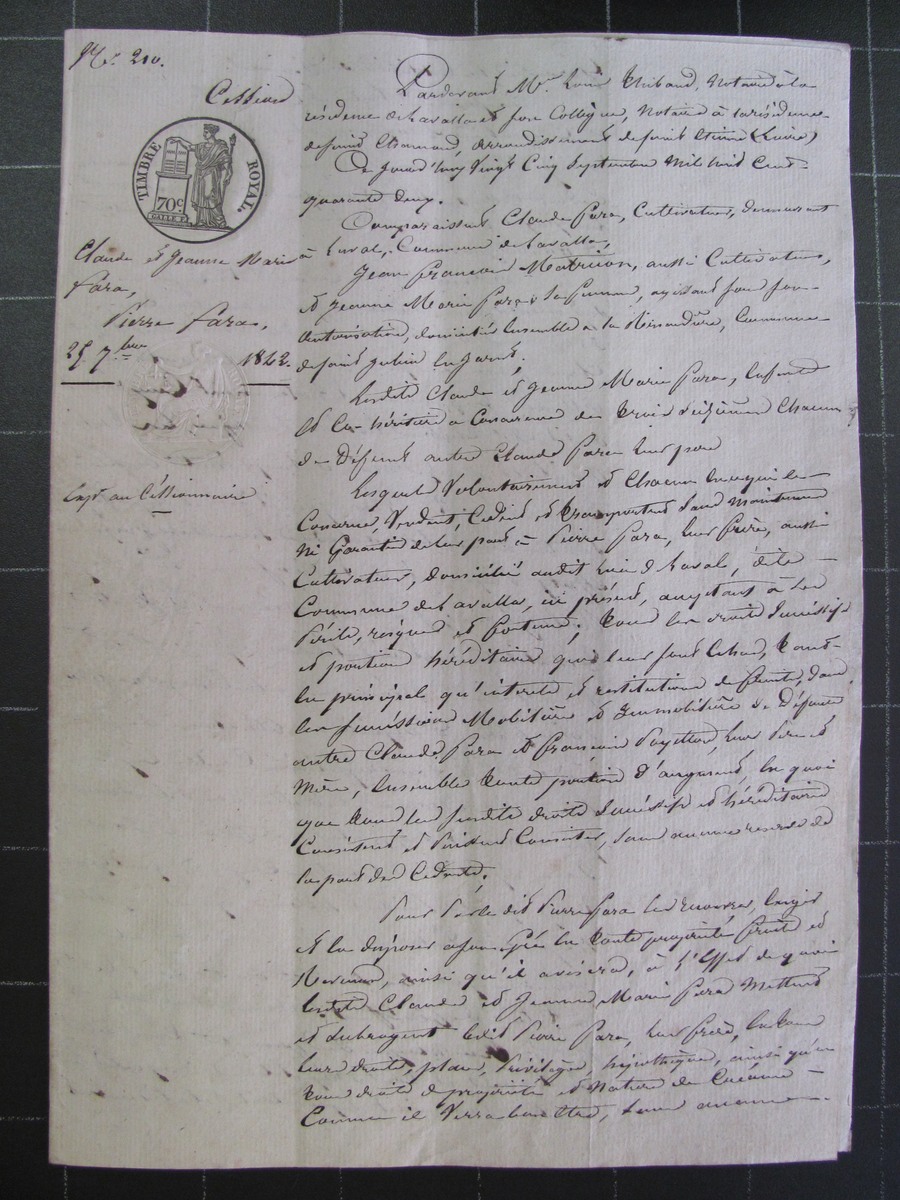 N.º 210.
Cession
TIMBRE ROYAL.
70c
Claude et Jeanne Marie
Fara,
Pierre Fara,
25 7.bre 1842.
Exp. au Cessionnaire
Pardevant Me. Louis Thibaud, Notaire à la
résidence de Lavalla et son Collègue, Notaire à la résidence
de Saint Chamond, arrondissement de Saint Etienne (Loire)
Ce jourd'huy Vingt Cinq Septembre Mil huit Cent
quarante deux.
Comparaissent Claude Fara, Cultivateur, demeurant
à Laval, Commune de Lavalla,
Jean François Matricon, aussi Cultivateur,
et Jeanne Marie Fara, sa femme, agissant sous son
autorisation, domiciliés Ensemble à la Commune
de Saint Julien en Jarrêt.
Lesdits Claude et Jeanne Marie Fara, Enfants
et Co-héritiers à Concurrence de trois Chacun
de Défunt autre Claude Fara leur père
Lesquels Volontairement et Chacun en ce qui le
Concerne, Vendent, Cèdent et transportent Sans Maintenue
Ni Garantie de leur part à Pierre Fara, leur frère, aussi
Cultivateur, domicilié audit lieu de Laval, dite
Commune de Lavalla, ici présent, acceptant à ses
Périls, risques et fortune; tous les droits Successifs
et portions héréditaires qui leur sont échus, tant
en principal qu'intérêts et restitutions de fruits, dans
les Successions Mobilière et Immobilière de Défunts
autre Claude Fara et Françoise leur Père et
Mère, Ensemble toute portion d'augment, en quoi
que tous les susdits droits Successifs et héréditaires
Consistent et Puissent Consister, sans aucune reserve de
la part des Cédants.
Pour Par le dit Pierre Fara les recouvrer, Exiger
Et en disposer a son gré en toute propriété
ainsi qu'il avisera, à l'Effet de quoi
lesdits Claude et Jeanne Marie Fara Mettent
et Subrogent ledit Pierre Fara, leur frère, en tous
leurs droits, place, Privilèges, hypothèques, ainsi qu'en
tous droits de propriété et
Comme il Verra bon être, sans aucune